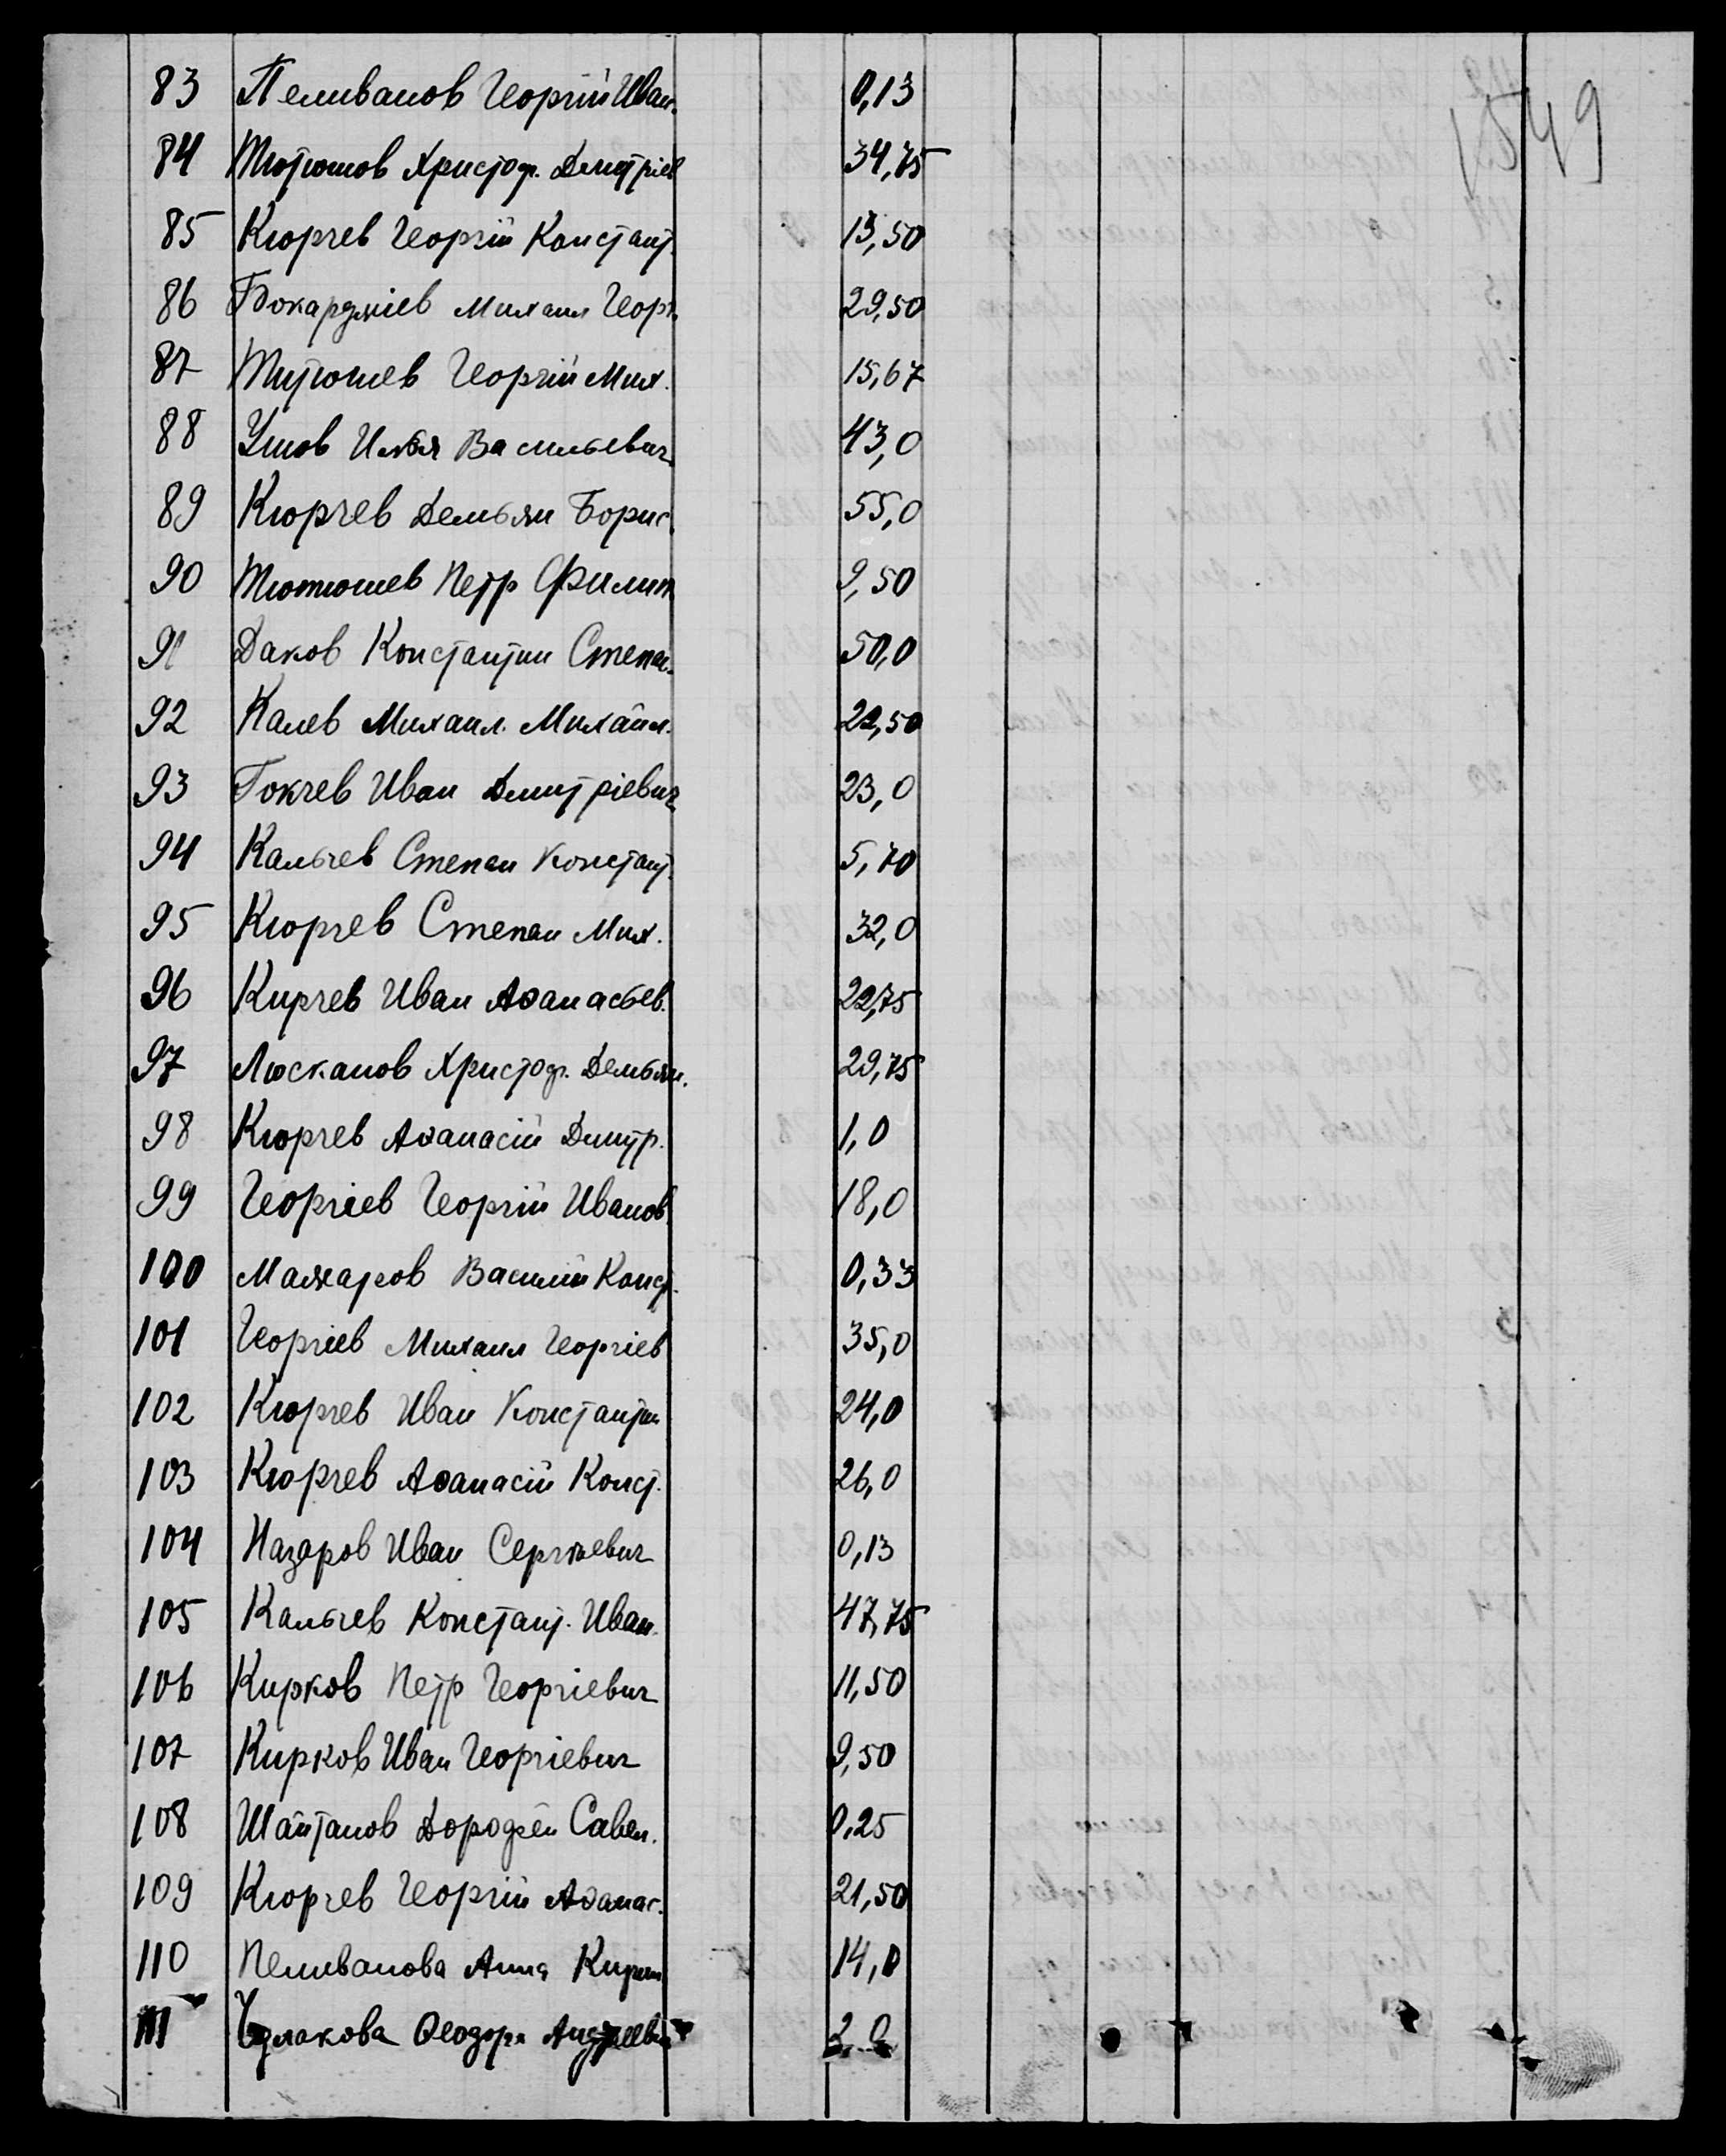 1549
83 Пеливанов Георгій Иван. 0,13
84 Тютюшов Христоф. Дмитріев 34,75
85 Кюрчев Георгій Констант. 13,50
86 Бокарджіев Михаил Георг. 29,50
87 Титюшев Георгій Мих. 15,67
88 Ушов Илья Васильевич 43,0
89 Кюрчев Демьян Борис. 55,0
90 Тютюшев Петр Филип 9,50
91 Даков Константин Степан. 50,0
92 Калев Михаил. Михайл. 22,50
93 Гокчев Иван Дмитріевич 23,0
94 Кальчев Степан Констант. 5,70
95 Кюрчев Степан Мих. 32,0
96 Кирчев Иван Аѳанасьев. 22,75
97 Люсканов Христоф. Демьян. 29,75
98 Кюрчев Аѳанасій Дмитр. 1,0
99 Георгіев Георгій Иванов 18,0
100 Мажаров Василій Конст. 0,33
101 Георгіев Михаил Георгіев 35,0
102 Кюрчев Иван Константин 24,0
103 Кюрчев Аѳанасій Конст. 26,0
104 Назаров Иван Сергѣевич 0,13
105 Кальчев Констант. Иван. 47,75
106 Кирков Петр Георгіевич 11,50
107 Кирков Иван Георгіевич 9,50
108 Шайтанов Дорофей Савел. 0,25
109 Кюрчев Георгій Аѳанас. 21,50
110 Пеливанова Анна Кирил 14,0
111 Ѳеодора Андреевна